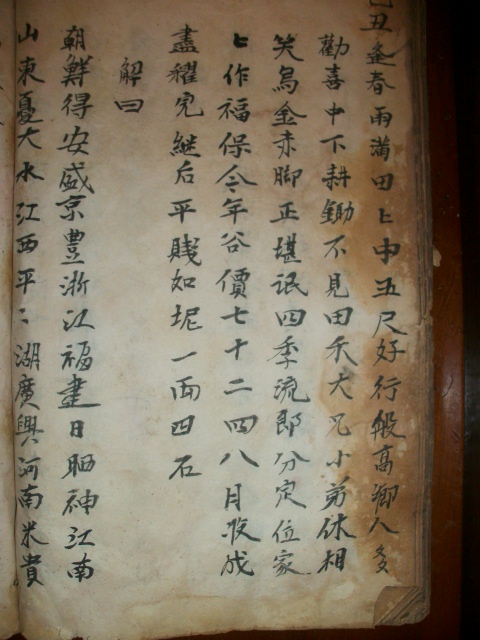 丑逢春雨满田〻中五尺好行船高鄉人多
勸喜中下耕鋤不見田禾大兄小弟休相
笑烏金赤脚正堪氓四季流郎分定位家
〻作福保今年谷價七十二四八月收成
盡糴完継后平賤如坭一両四石
解曰
朝鮮得安盛京豊浙江福建日晒神江南
山東憂大水江西平〻湖廣興河南米貴